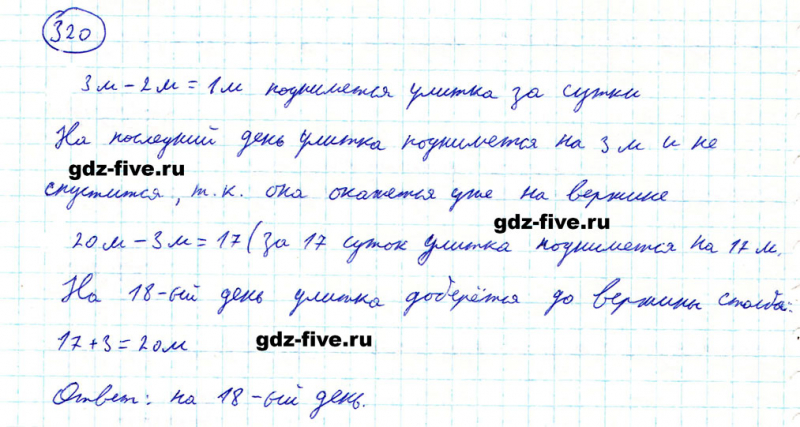 320
3м - 2м = 1м поднимется улитка за сутки
На последний день улитка поднимется на 3м и не
gdz-five.ru
спустится, т.к. она окажется уже на вершине
gdz-five.ru
20м - 3м = 17 (за 17 суток улитка поднимется на 17 м.
На 18-ый день улитка доберётся до вершины столба:
17 + 3 = 20м
gdz-five.ru
Ответ: на 18-ый день.